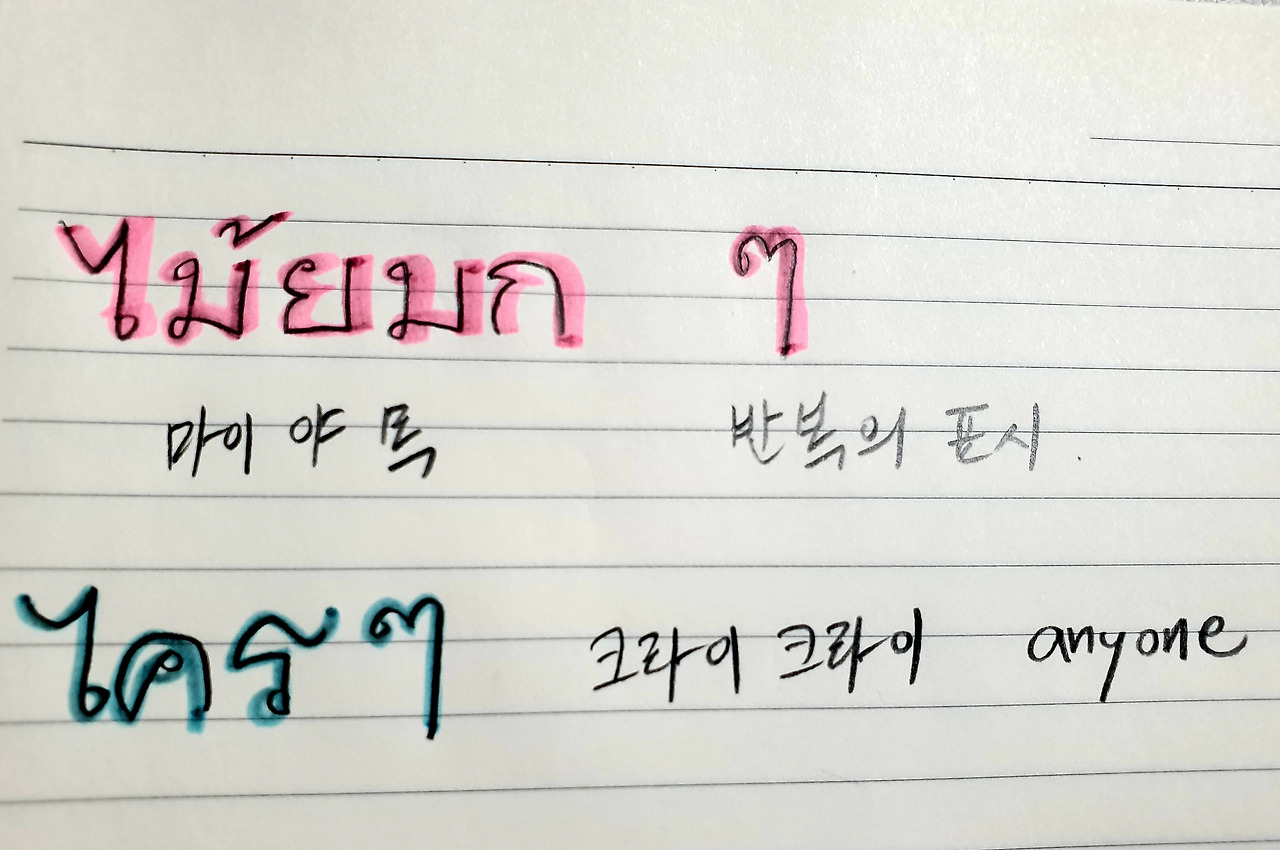 ไม้ยมก ๆ
마이 야 목 반복의 표시.
ไคร ๆ 크라이 크라이 anyone